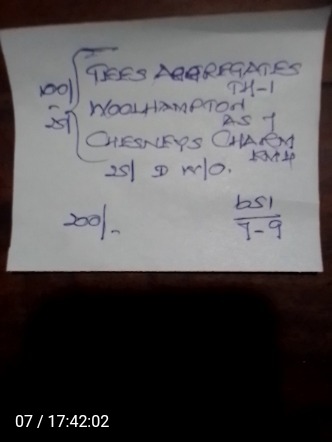 100/- TEES AGGREGATES
TH-1
25/ WOOLHAMPTON
AS 7
CHESNEYS CHARM
KM4
25/ D W/O.
200/-
bS1
7-9
07 / 17:42:02